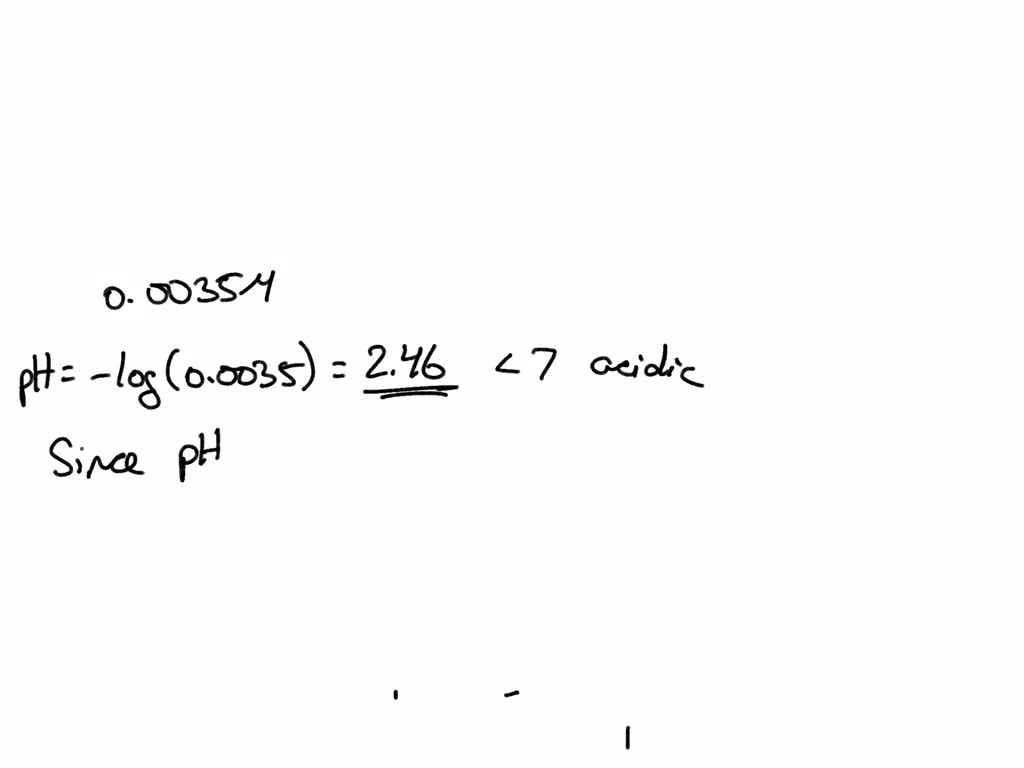 0.0035M
pH = -log(0.0035) = 2.46 < 7 acidic
Since pH